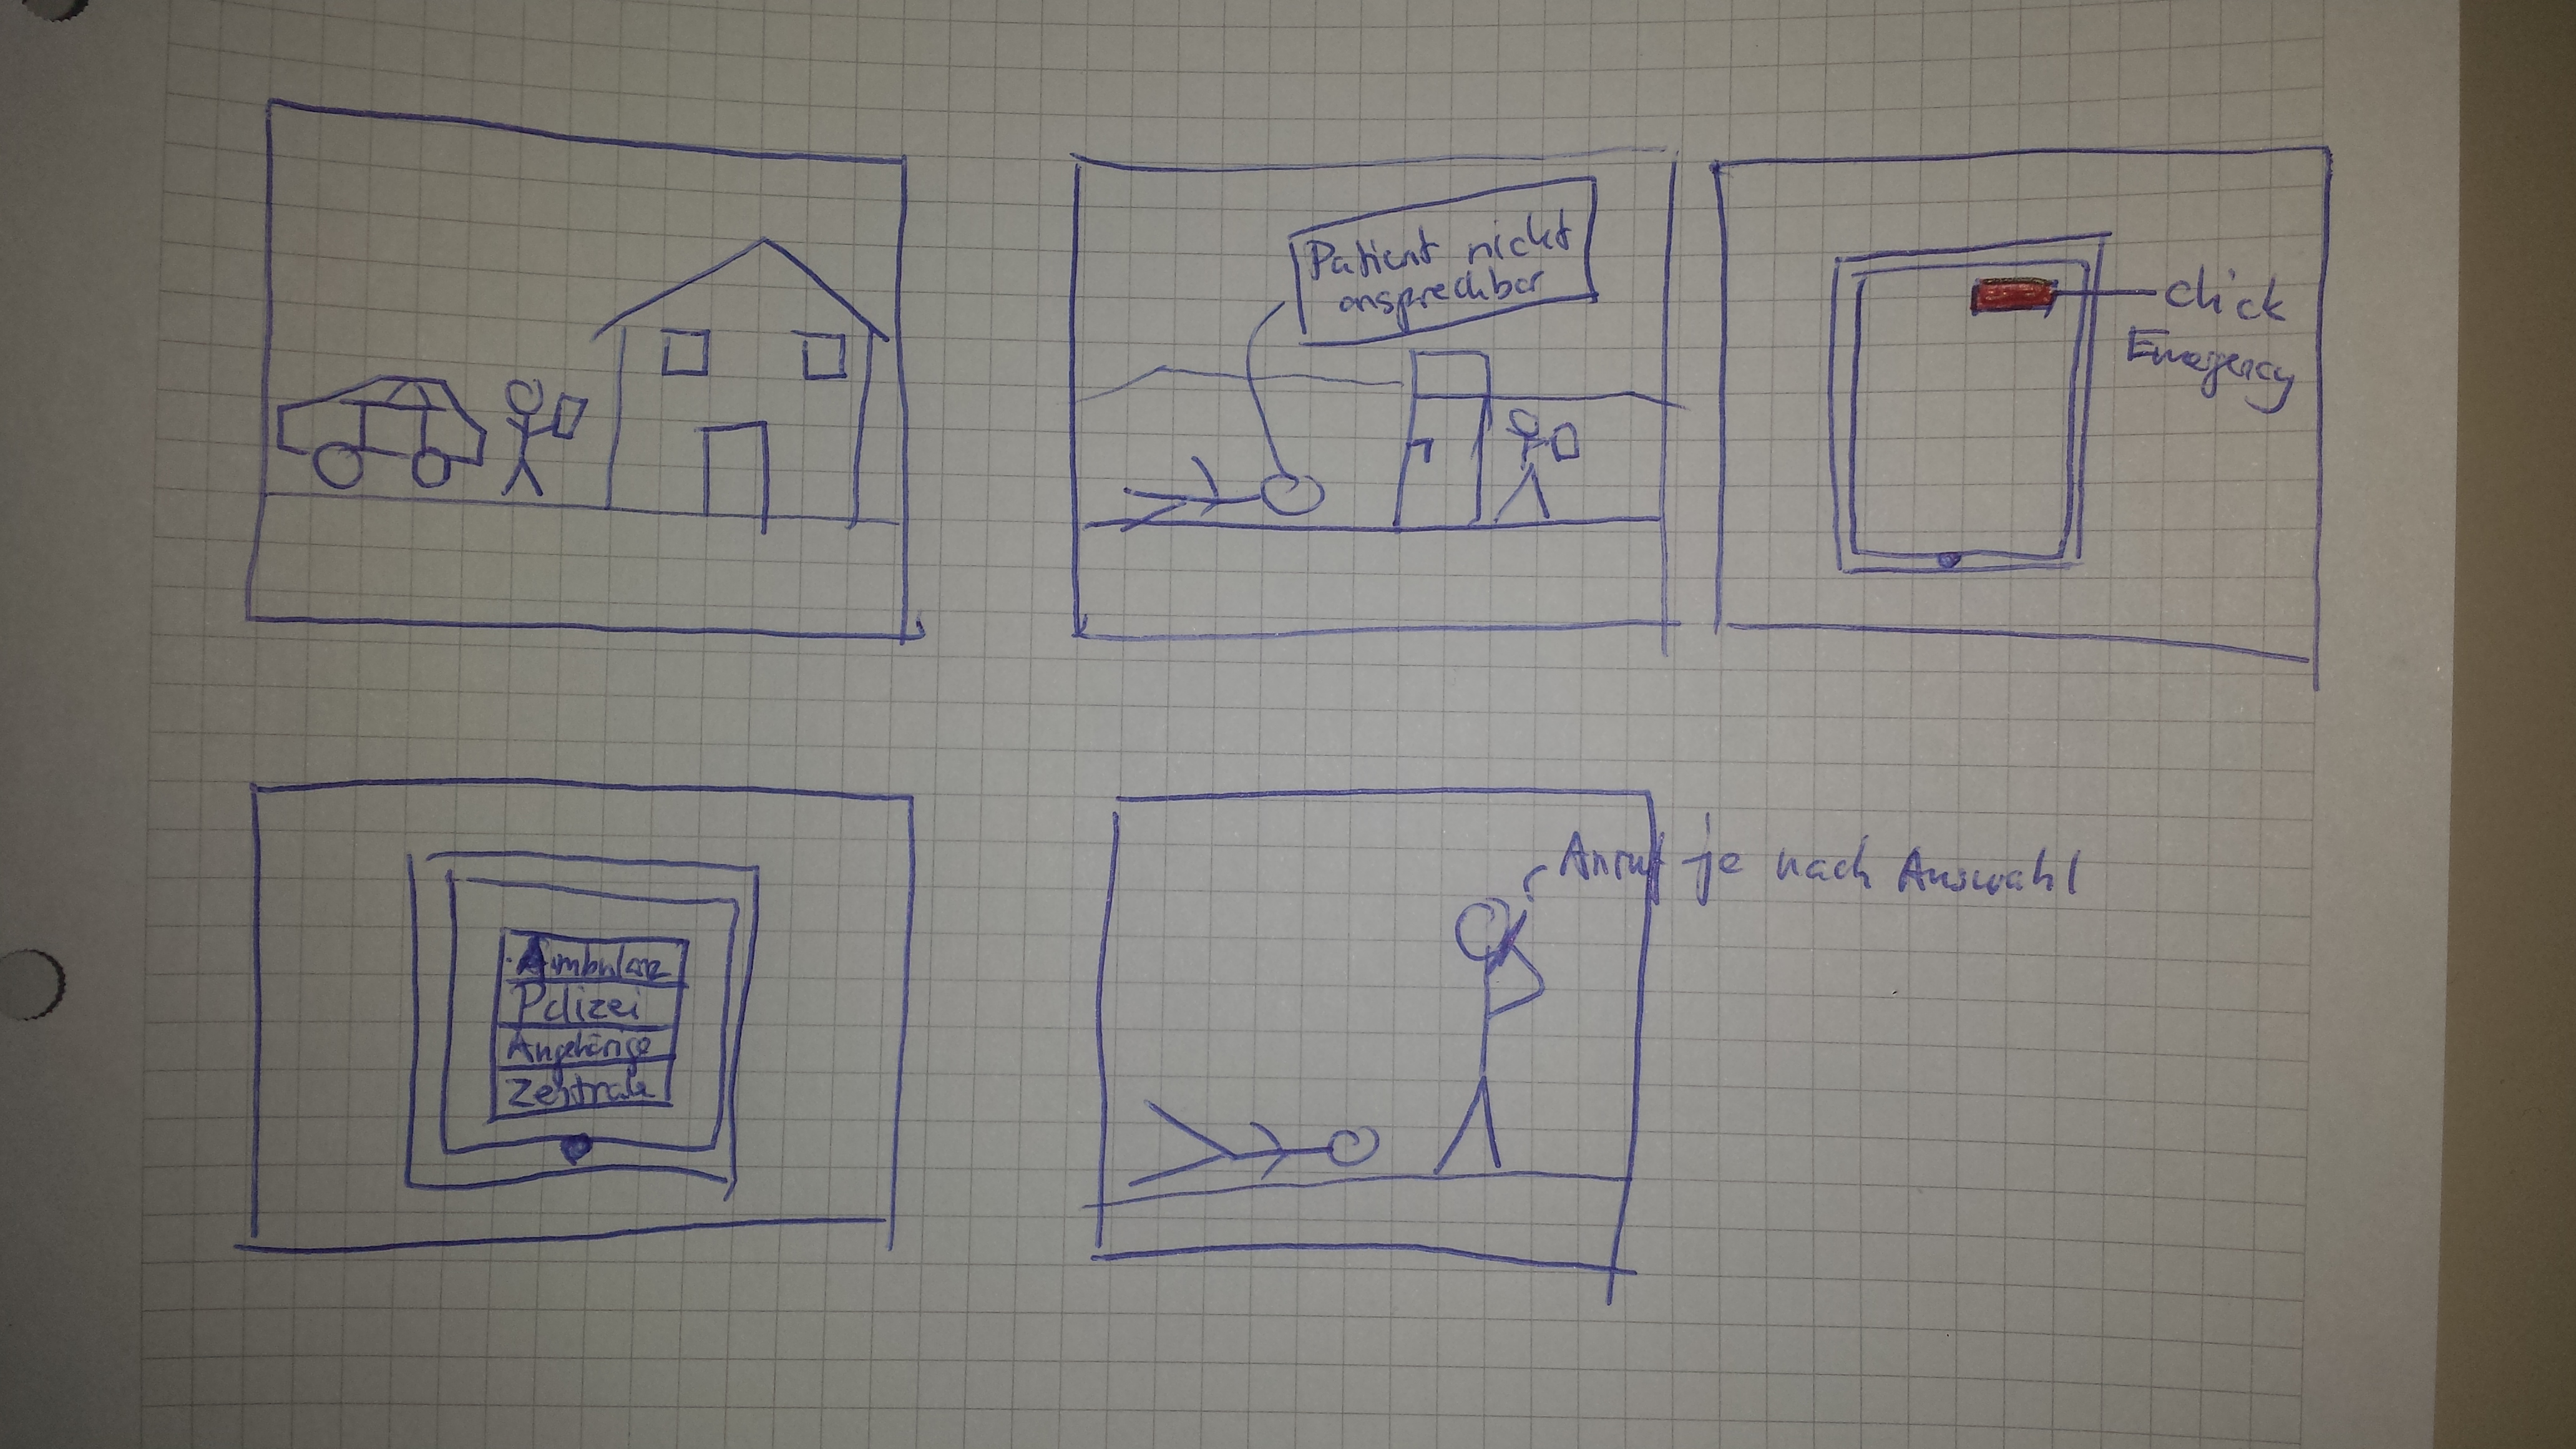 Patient nicht
ansprechbar
click
Emergency
Ambulanz
Polizei
Angehörige
Zentrale
Anruf je nach Auswahl